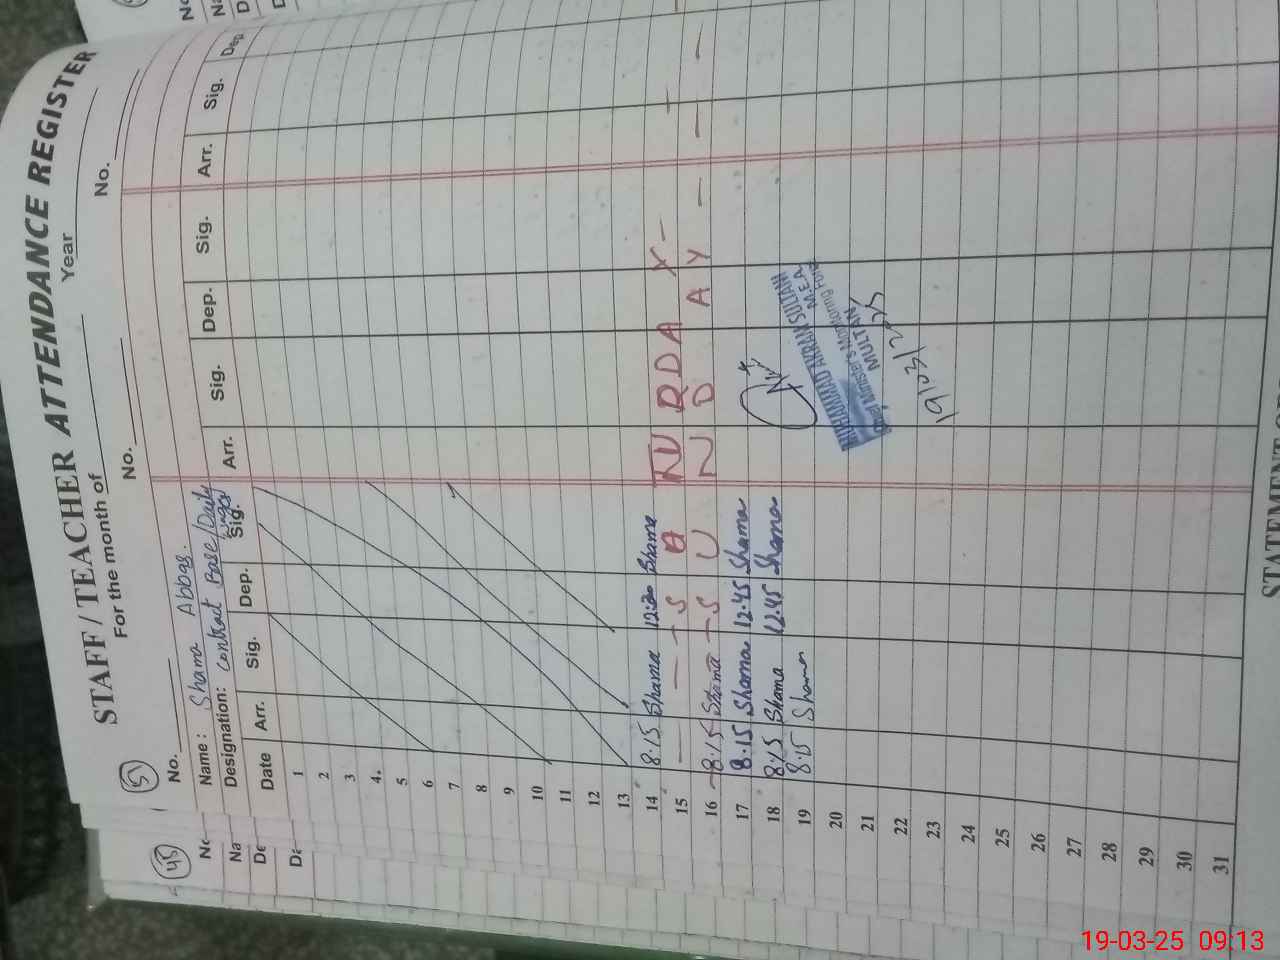 STAFF / TEACHER ATTENDANCE REGISTER
For the month of Year
51
No. No. No.
Name: Shama Abbas.
Designation: Contract Base/Daily Wages
Date Arr. Sig. Dep. Sig. Arr. Sig. Dep. Sig. Arr. Sig. Dep.
1
2
3
4.
5
6
7
8
9
10
11
12
13
14 8:15 Shama 12:30 Shama
15 — — — S A TU R D A Y —
16 8:15 Shama — S U N D A Y — — — —
17 8:15 Shama 12:45 Shama
18 8:15 Shama 12:45 Shama
19 8:15 Shama
MUHAMMAD AKRAM SULTANI
M.E.A
Chief Minister's Monitoring Force
MULTAN
19/03/2025
20
21
22
23
24
25
26
27
28
29
30
31
48
19-03-25 09:13